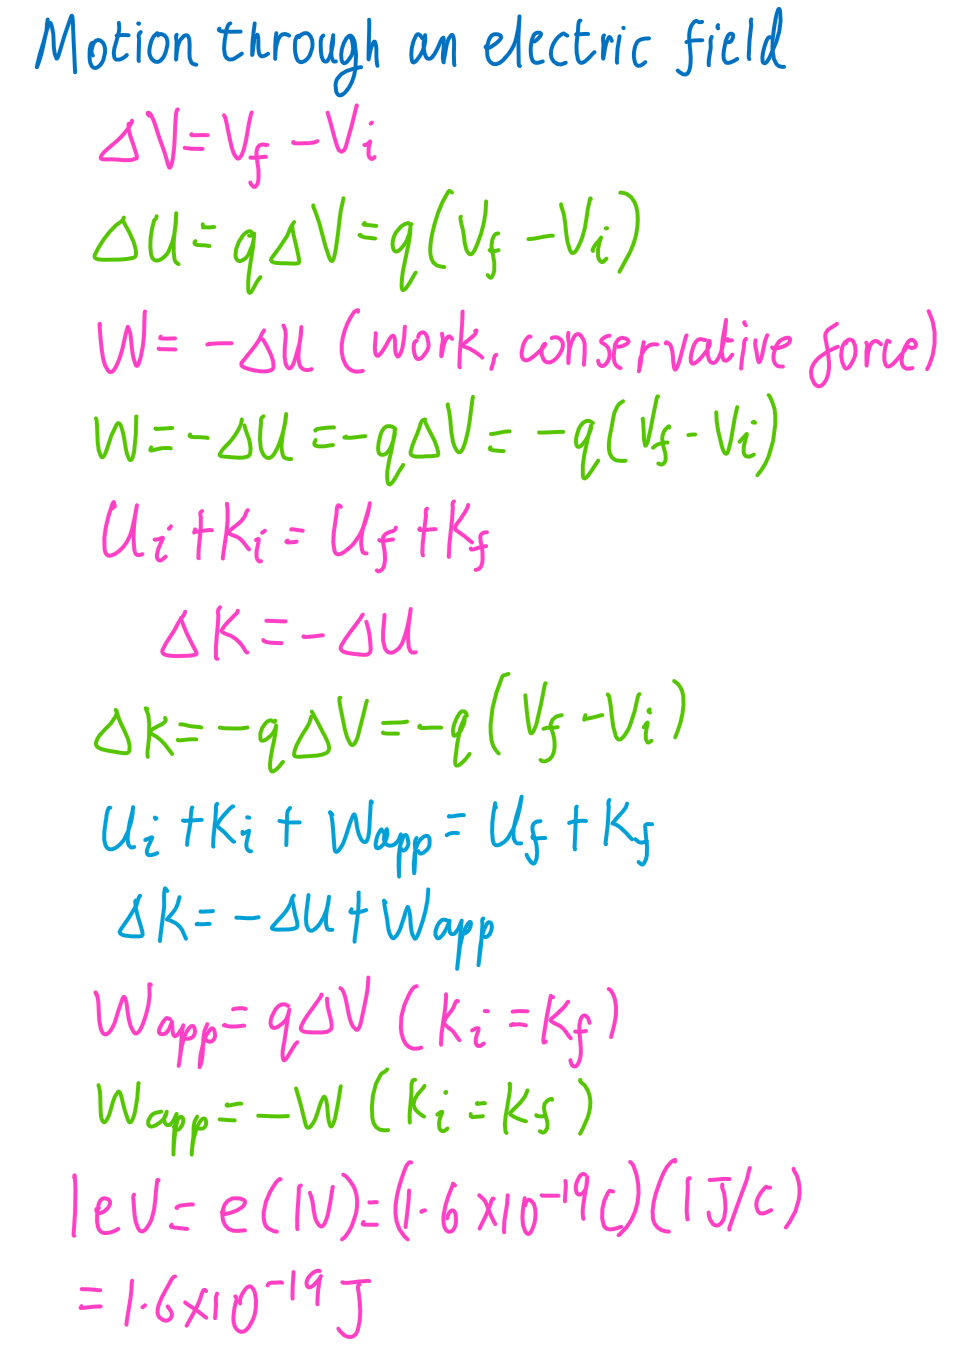 Motion through an electric field
ΔV = Vf - Vi
ΔU = qΔV = q(Vf - Vi)
W = -ΔU (work, conservative force)
W = -ΔU = -qΔV = -q(Vf - Vi)
Ui + Ki = Uf + Kf
ΔK = -ΔU
ΔK = -qΔV = -q(Vf - Vi)
Ui + Ki + Wapp = Uf + Kf
ΔK = -ΔU + Wapp
Wapp = qΔV (Ki = Kf)
Wapp = -W (Ki = Kf)
1eV = e(1V) = (1.6 x 10⁻¹⁹ C)(1 J/C)
= 1.6 x 10⁻¹⁹ J